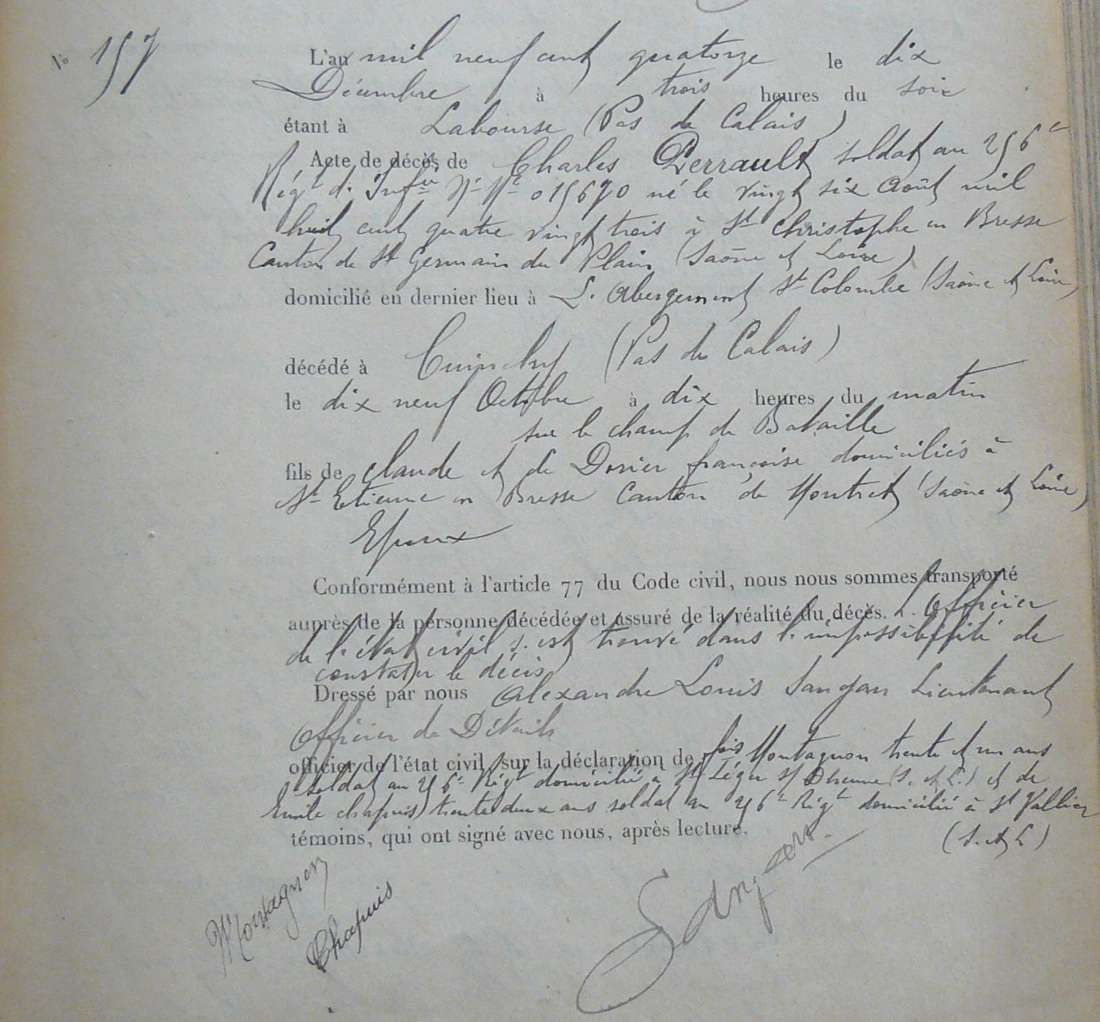 N° 157
L'an mil neuf cent quatorze le dix
Décembre à trois heures du soir
étant à Labourse (Pas de Calais)
Acte de décès de Charles Perrault soldat au 256e
Régt d'Infie Nº Mle 015670 né le vingt six Août mil
huit cent quatre vingt trois à St Christophe en Bresse
Canton de St Germain du Plain (Saône et Loire)
domicilié en dernier lieu à L'Abergement St Colombe (Saône et Loire)
décédé à Cuinchy (Pas de Calais)
le dix neuf Octobre à dix heures du matin
sur le champ de Bataille
fils de Claude et de Dorier françoise domiciliés à
St Etienne en Bresse Canton de Montret (Saône et Loire)
Epoux
Conformément à l'article 77 du Code civil, nous nous sommes transporté
auprès de la personne décédée et assuré de la réalité du décès. L'Officier
de l'état civil s'est trouvé dans l'impossibilité de
constater le décès
Dressé par nous Alexandre Louis Sanjan Lieutenant
Officier de Détails
officier de l'état civil, sur la déclaration de Montagnon trente et un ans
soldat au 256e Régt domicilié à St Léger St Dheune (S. et L.) et de
Emile Chapuis trente deux ans soldat au 256e Régt domicilié à St Vallier
témoins, qui ont signé avec nous, après lecture. (S. et L)
Montagnon
Chapuis
Sanjan